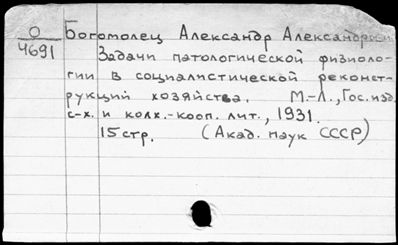 О
4691
Богомолец Александр Александрович
Задачи патологической физиоло-
гии в социалистической реконст-
рукций хозяйства. М.-Л., Гос. изд.
с-х. и колх.-кооп. лит., 1931.
15 стр. (Акад. наук СССР)